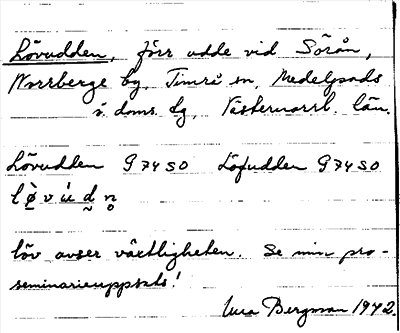 Lövudden, förr udde vid Sörån,
Norrberge by, Timrå sn, Medelpads
v. doms. tg, Västernorrl. län.
Lövudden G 74 SO Löfudden G 74 SO
l ò̤ v ú d̰ n̥
löv avser växtligheten. Se min pro-
seminarieuppsats!
Bergman 1942.